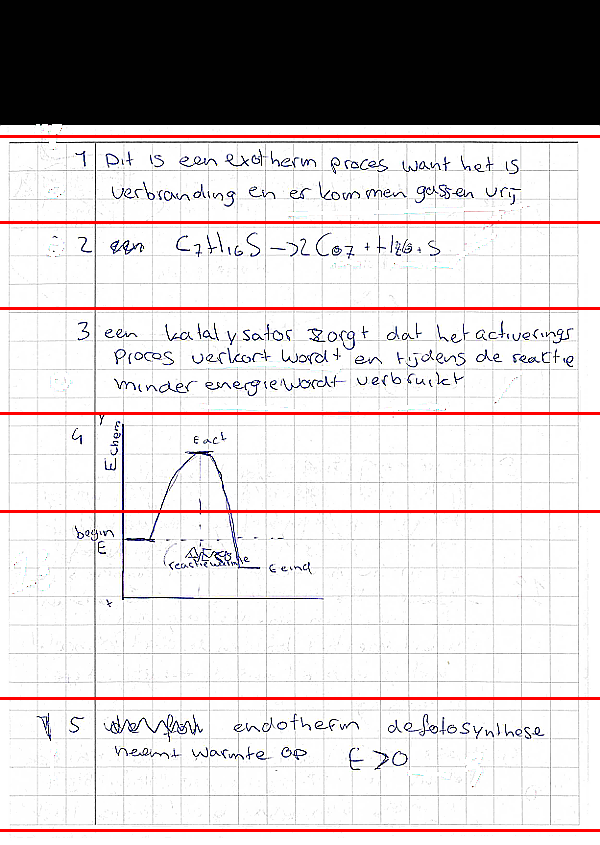 1 Dit is een exotherm proces want het is
verbranding en er kommen gassen vrij
2 C7H16S ->2 CO7 + H16 + S
3 een katalysator zorgt dat het activerings
Proces verkort wordt en tijdens de reactie
minder energie wordt verbruikt
4
y
E chem
E act
begin
E
reactiewarmte
E eind
x
5 endotherm de fotosynthese
neemt warmte op E >0